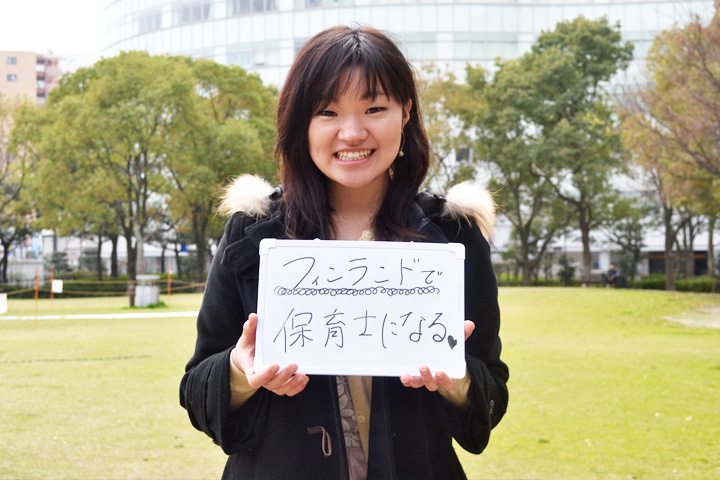 フィンランドで
保育士になる♥